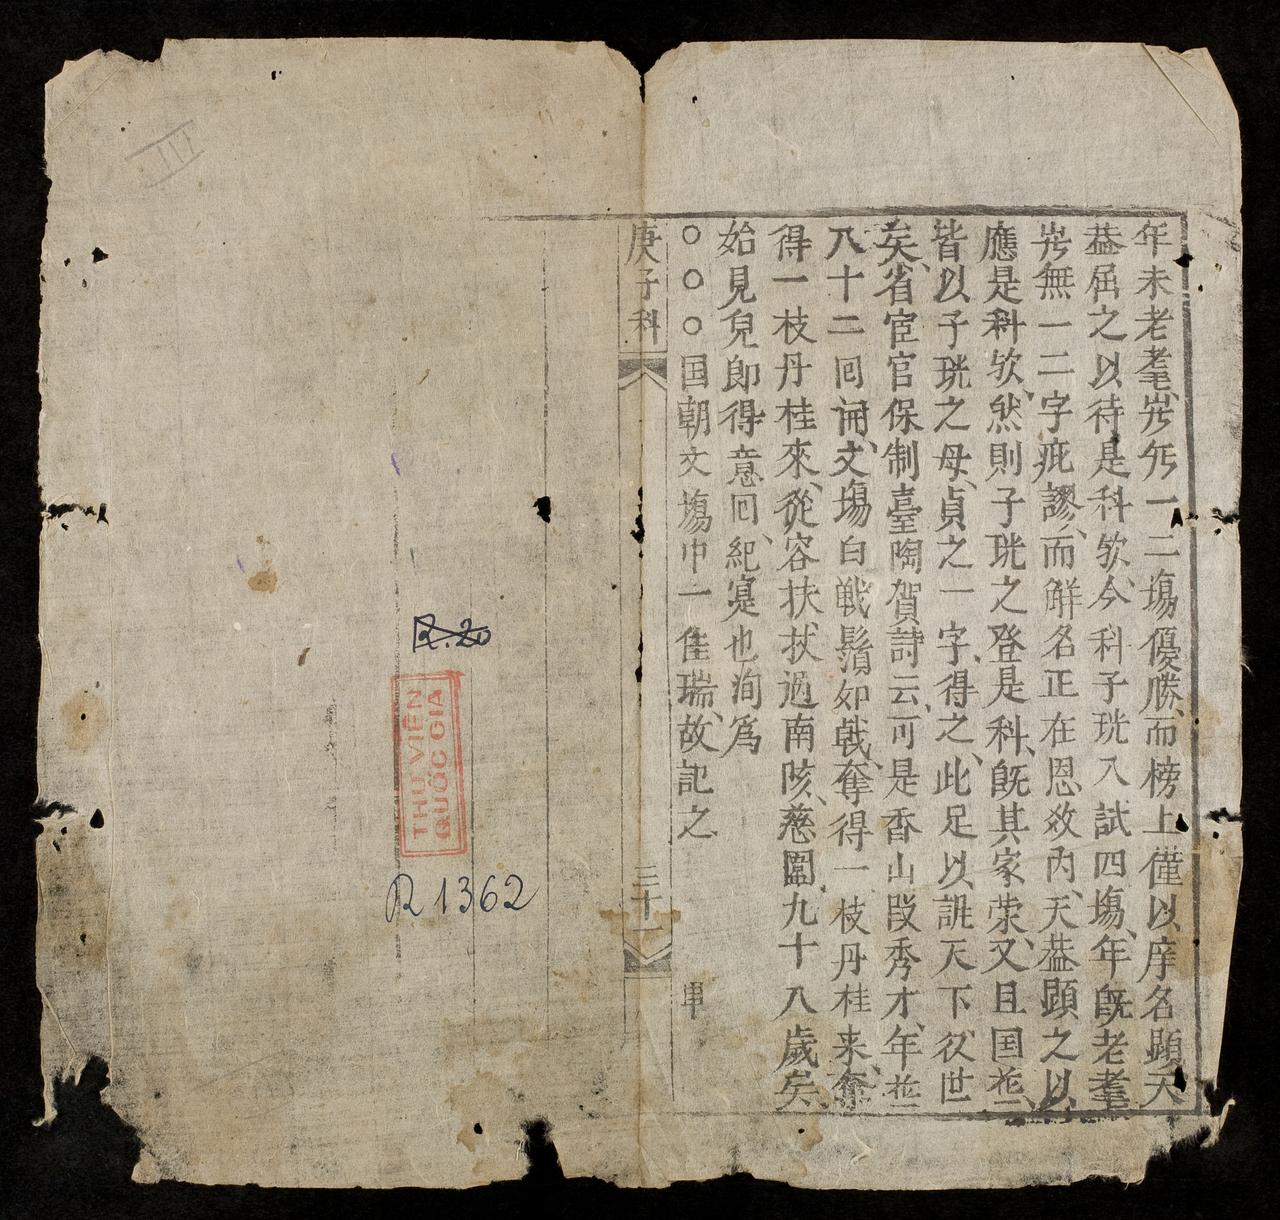 年未老耄、岁歹一二場優勝、而榜上僅以庠名、顕天
益屈之、以待是科欤、今科子珖入試四場、年既老耄
岁無一二字疵謬、而觧名正在恩效内、天益顕之、以
應是科欤、然則子珖之登是科、既其家荣、又且国
皆以子珖之母、貞之一字、得之、此足以誰天下後世
矣、省宦官保制臺陶賀詩云、可是香山段秀才、年
八十二回誦、文場白戦鬚如戟、奪得一枝丹桂来、奪
得一枝丹桂來、從容扶杖過南陔、慈闈九十八歲矣、
始見兒郎得意回、紀寔也洵為
○○○国朝文場中一佳瑞、故記之
庚子科
三十一
串
III
R.20
THƯ VIỆN
QUỐC GIA
R 1362